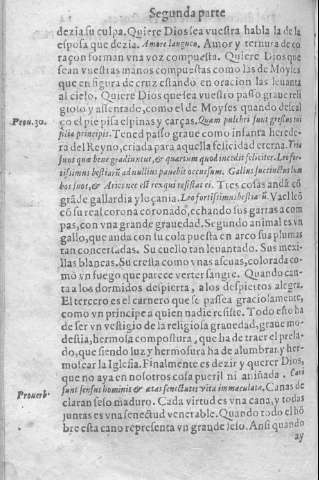 Segunda parte
dezia su culpa. Quiere Dios sea vuestra habla la de la
esposa que dezia. Amore langueo. Amor y ternura de co
raçon forman vna voz compuesta. Quiere Dios que
sean vuestras manos compuestas como las de Moyses
que en figura de cruz estando en oracion las leuanta
al cielo. Quiere Dios que sea vuestro passo graue reli
gioso y assentado, como el de Moyses quando descal
Prou. 30.
ço el pie pisa espinas y çarças. Quam pulchri sunt gressus tui
filia principis. Tened passo graue como infanta herede-
ra del Reyno, criada para aquella felicidad eterna. Tria
sunt quæ bene gradiuntur, & quartum quod incedit feliciter. Leo for-
tissimus bestiarũ ad nullius pauebit occursum. Gallus succinctus lum
bos suos, & Aries nec est rex qui resistat ei. Tres cosas andã cõ
grãde gallardia y loçania. Leo fortissimus bestiarũ. Va el leõ
cõ su real corona coronado, echando sus garras a com
pas, con vna grande grauedad. Segundo animal es vn
gallo, que anda con su cola puesta en arco sus plumas
tan concertadas. Su cuello tan leuantado. Sus mexi-
llas blancas. Su cresta como vnas ascuas, colorada co-
mo vn fuego que parece verter sangre. Quando can-
ta a los dormidos despierta, a los despiertos alegra.
El tercero es el carnero que se passea graciosamente,
como vn principe a quien nadie resiste. Todo esto ha
de ser vn vestigio de la religiosa grauedad, graue mo-
destia, hermosa compostura, que ha de traer el prela-
do, que siendo luz y hermosura ha de alumbrar y her-
mosear la Iglesia. Finalmente es dezir y querer Dios,
que no aya en nosotros cosa pueril ni aniñada. Cani
Prouerb.
sunt sensus hominis & ætas senectutis vita immaculata. Canas de
claran seso maduro. Cada virtud es vna cana, y todas
juntas es vna senectud venerable. Quando todo el hõ
bre esta cano representa vn grande seso. Ansi quando
ay